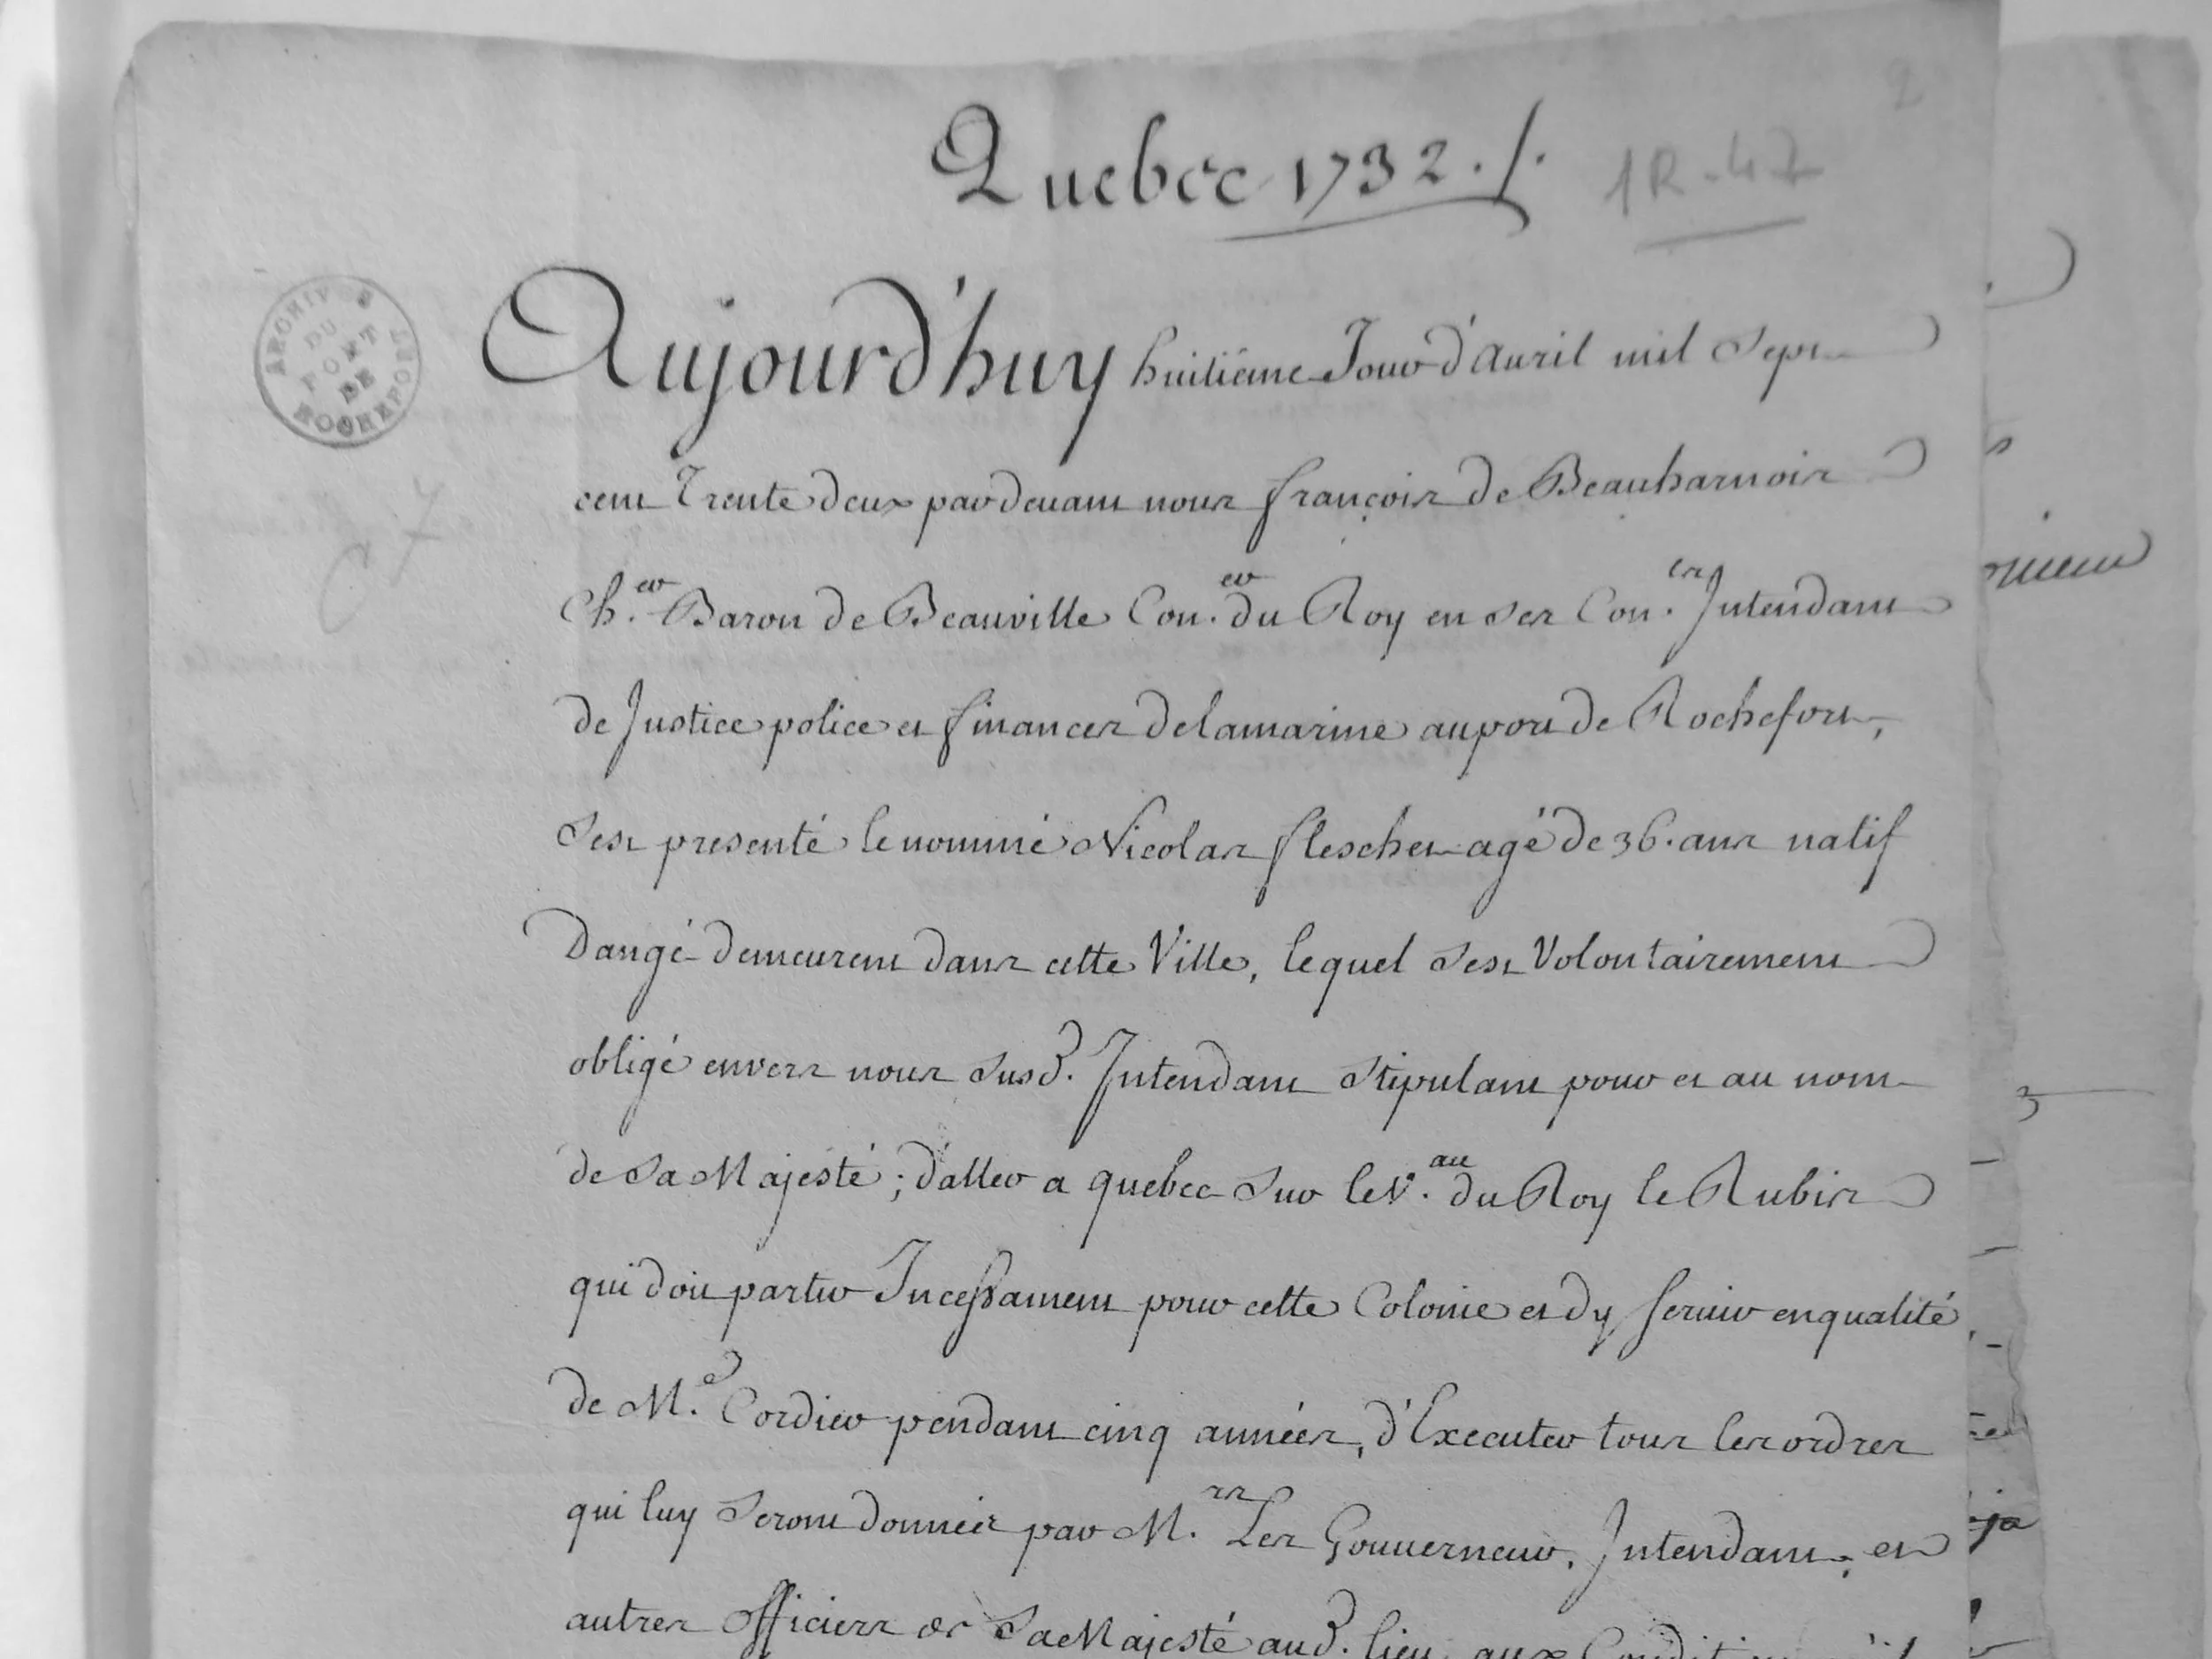 2
Quebec 1732./.
1R-47
ARCHIVES DU PORT DE ROCHEFORT
Aujourd'huy huitiéme Jour d'auril mil Sept
cent Trente deux par deuant nous françois de Beauharnois
C 7
Ch.er Baron de Beauville Con.er du Roy en ses Con.ers Intendant
de Justice police et finances delamarine auport de Rochefort,
Sest presenté le nommé Nicolas fleschet agé de 36. ans natif
Dangé demeurent dans cette Ville, lequel Sest Volontairement
obligé envers nous Susd. Intendant Stipulant pour et au nom
de Sa Majesté; d'aller a quebec Sur leV.au du Roy le Rubis
qui doit partir Incessament pour cette Colonie et dy seruir enqualité
de M.e Cordier pendant cinq années, d'Executer tous les ordres
qui luy Seront donnés par M.rs Les Gouuerneur, Intendant, et
autres officiers de SaMajesté aud. lieu, aux